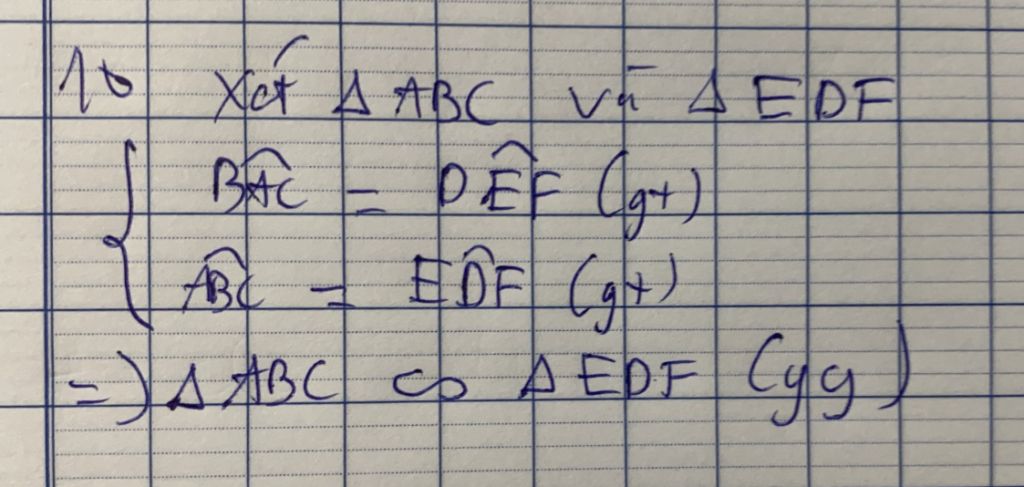 1b Xét Δ ABC và Δ EDF
{ BÂC = DÊF (gt)
ABC = EDF (gt)
=) Δ ABC ∽ Δ EDF (gg)